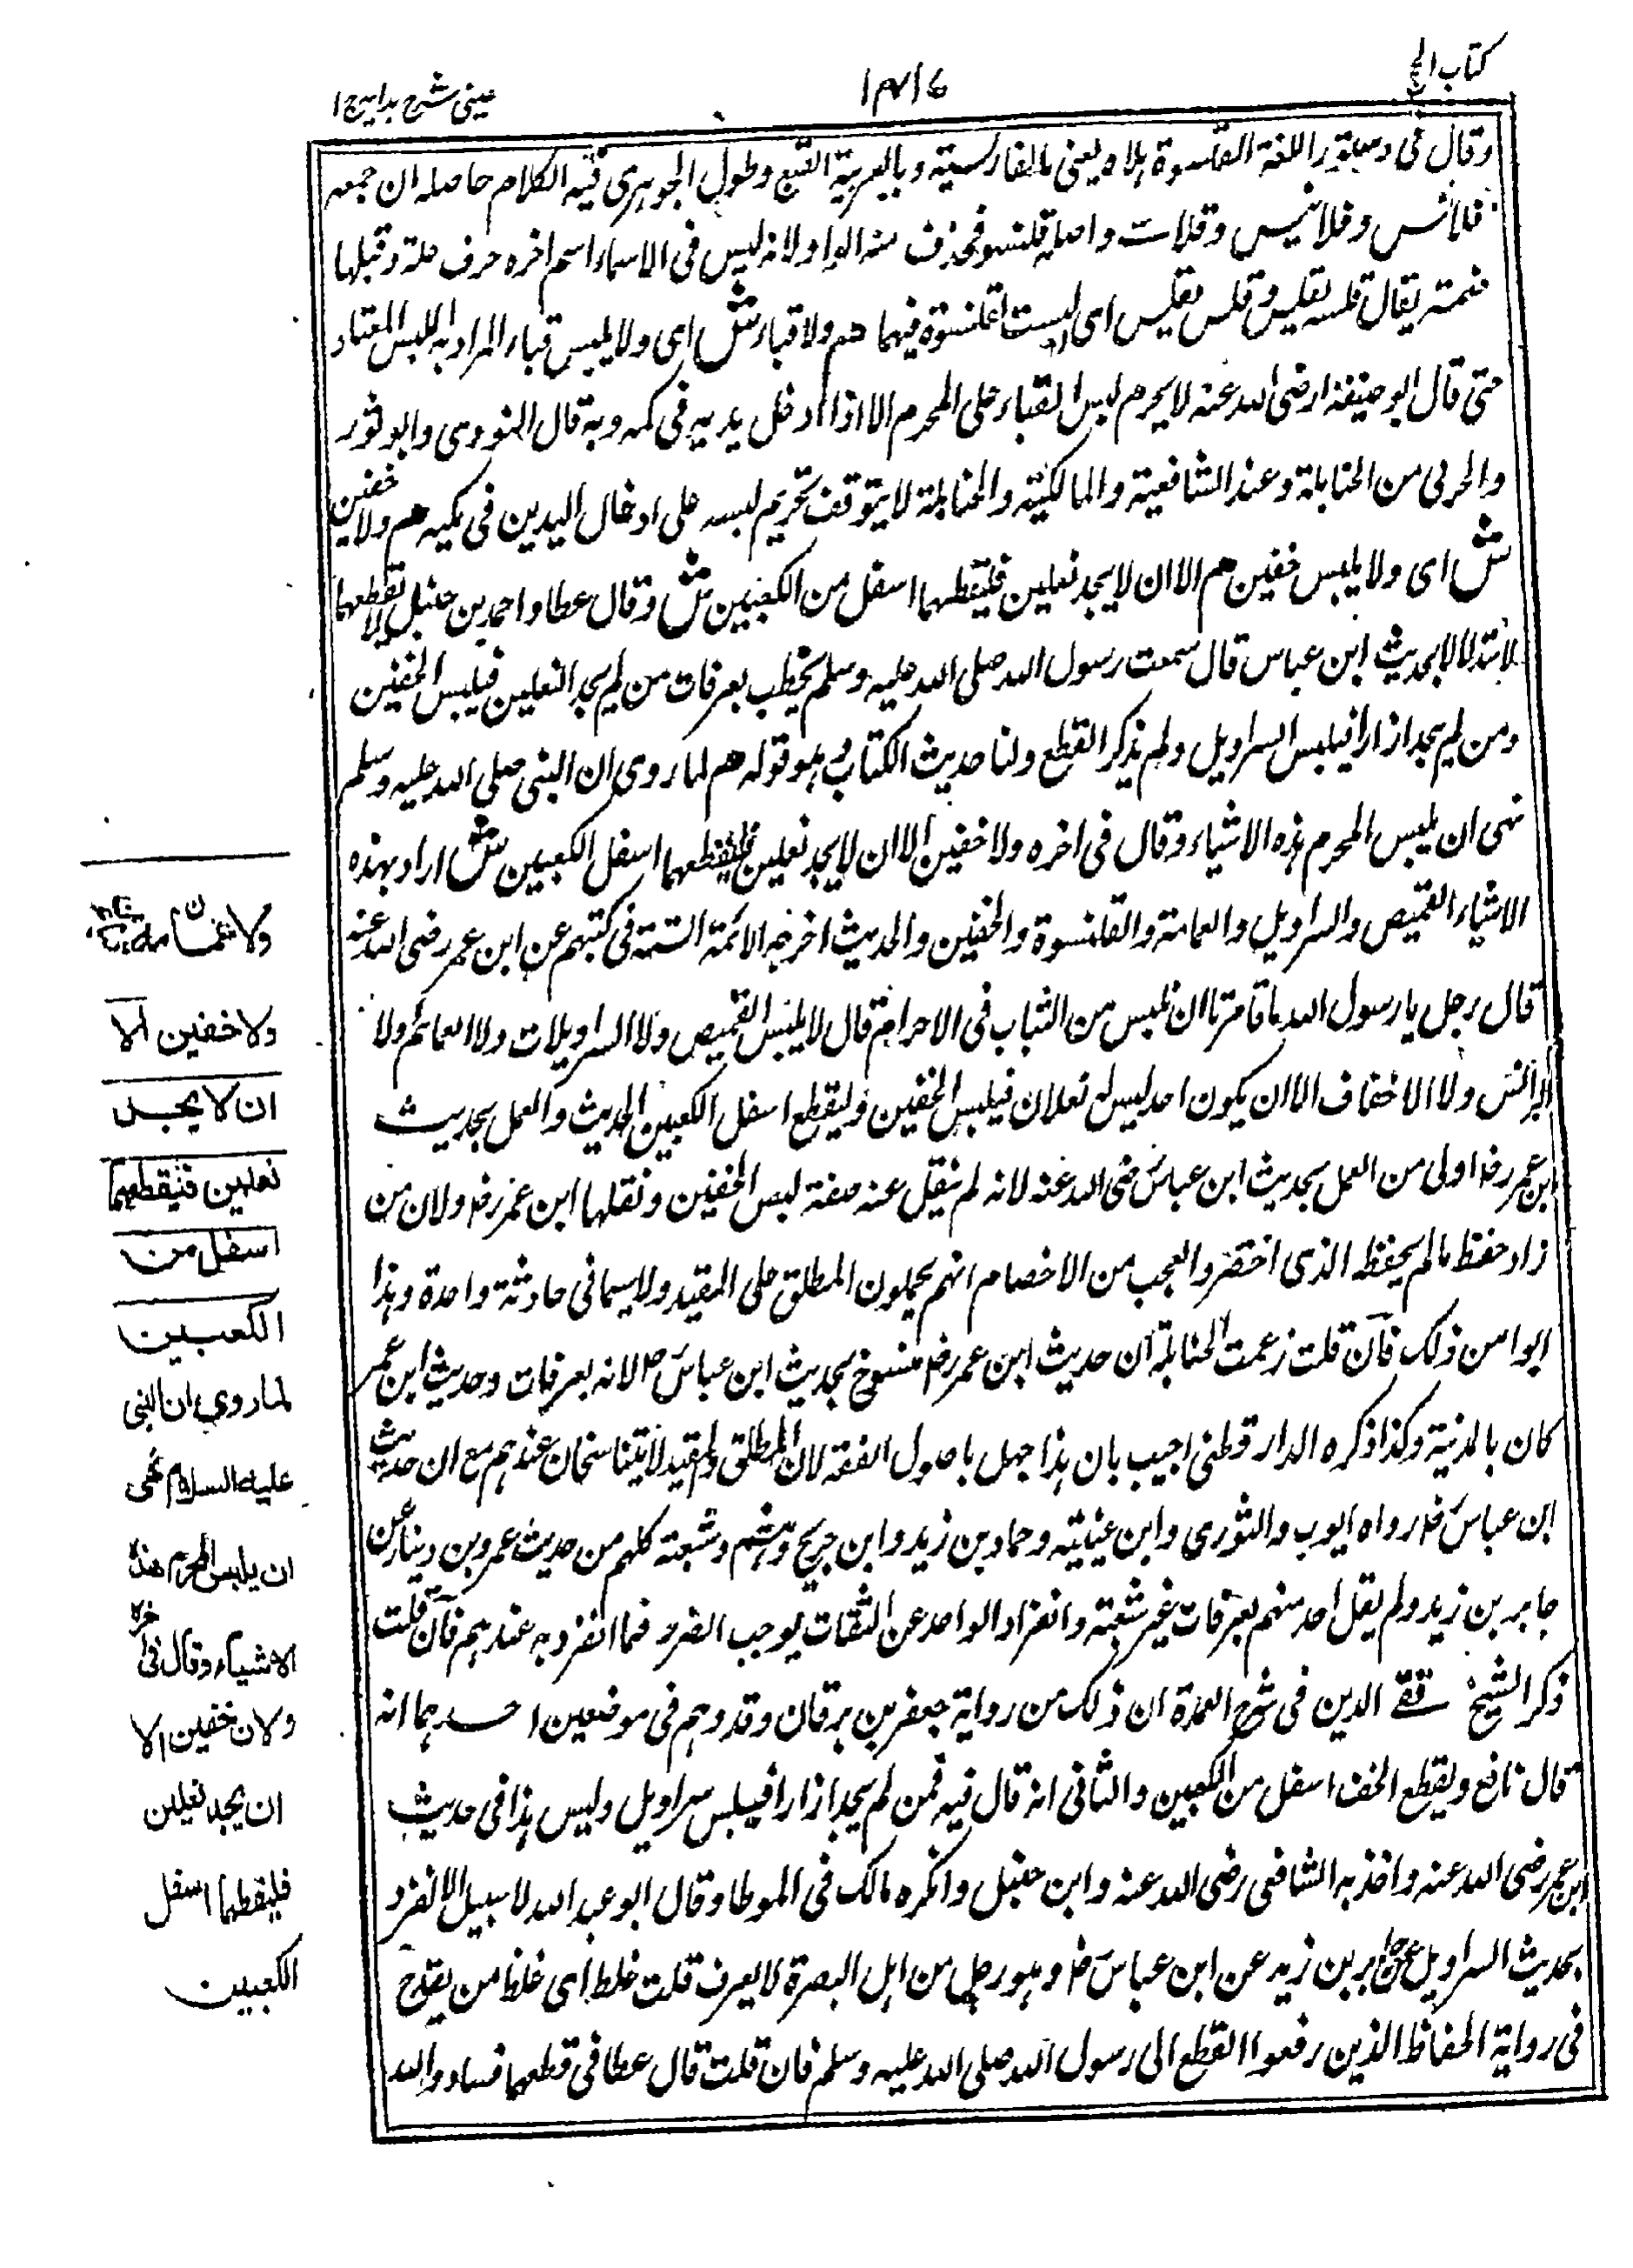 كتاب الحج
١٣١٤
عینی شرح هدایه ج ١
وقال فی دستور اللغة القلنسوة كلاه یعنی بالفارسیة وبالعربیة القبع وطول الجوهری فیه الكلام حاصله ان جمعه
قلانس وقلانیس وقلات واصله قلنسو فحذف منه الواو لانه لیس فی الاسماء اسم اخره حرف علة وقبلها
ضمة یقال قلسه یقلیس وقلس یقلیس ای لبست القلنسوة فیهما هم ولا قباء ش ای ولا یلبس قباء المراد به اللبس المعتاد
حتی قال ابو حنیفة رضی الله عنه لا یحرم لبس القباء علی المحرم الا اذا ادخل یدیه فی كمه وبه قال النووی وابو ثور
والحربی من الحنابلة وعند الشافعیة والمالكیة والحنابلة لا یتوقف تحریم لبسه علی ادخال الیدین فی كمیه هم ولا خفین
ش ای ولا یلبس خفین هم الا ان لا یجد نعلین فلیقطهما اسفل من الكعبین ش وقال عطا واحمد بن حنبل لا یقطعهما
لاستدلالا بحدیث ابن عباس قال سمعت رسول الله صلی الله علیه وسلم یخطب بعرفات من لم یجد النعلین فیلبس الخفین
ومن لم یجد ازارا فیلبس السراویل ولم یذكر القطع ولنا حدیث الكتاب وهو قوله هم لما روی ان النبی صلی الله علیه وسلم
نهی ان یلبس المحرم هذه الاشیاء وقال فی اخره ولا خفین الا ان لا یجد نعلین فلیقطعهما اسفل الكعبین ش اراد بهذه
الاشیاء القمیص والسراویل والعمامة والقلنسوة والخفین والحدیث اخرجه الائمة الستة فی كتبهم عن ابن عمر رضی الله عنه
قال رجل یا رسول الله ما تامرنا ان نلبس من الثیاب فی الاحرام قال لا یلبس القمیص ولا السراویلات ولا العمائم ولا
البرانس ولا الاخفاف الا ان یكون احد لیس له نعلان فیلبس الخفین ولیقطع اسفل الكعبین الحدیث والعمل بحدیث
ابن عمر رض اولی من العمل بحدیث ابن عباس رضی الله عنه لانه لم ینقل عنه صفة لبس الخفین ونقلها ابن عمر رض ولان من
زاد حفظ مالم یحفظه الذی اختصر والعجب من الاخصام انهم یحملون المطلق علی المقید ولا سیما فی حادثة واحدة وهذا
ابوا من ذلك فان قلت زعمت الحنابلة ان حدیث ابن عمر رض منسوخ بحدیث ابن عباس رض لانه بعرفات وحدیث ابن عمر
كان بالمدینة وكذا ذكره الدارقطنی اجیب بان هذا جهل باصول الفقه لان المطلق والمقید لا یتناسخان عندهم مع ان حدیث
ابن عباس رض رواه ایوب والثوری وابن عیینة وحماد بن زید وابن جریج وهشیم وشعبة كلهم من حدیث عمرو بن دینار عن
جابر بن زید ولم یقل احد منهم بعرفات غیر شعبة وانفراد الواحد عن الثقات یوجب الضرر فما انفرد به عندهم فان قلت
ذكر الشیخ تقی الدین فی شرح العمدة ان ذلك من روایة جعفر بن برقان وقد وهم فی موضعین احدهما انه
قال نافع ویقطع الخف اسفل من الكعبین والثانی انه قال فیه فمن لم یجد ازارا فیلبس سراویل ولیس هذا فی حدیث
ابن عمر رضی الله عنه واخذ به الشافعی رضی الله عنه وابن حنبل وانكره مالك فی الموطا وقال ابو عبد الله لا سبیل الا نفرد
بحدیث السراویل عن جابر بن زید عن ابن عباس رض وهو رجل من اهل البصرة لا یعرف قلت غلط ای غلط من یقدح
فی روایة الحفاظ الذین رفعوا القطع الی رسول الله صلی الله علیه وسلم فان قلت قال عطا فی قطعهما فساد والله
ولا
ولا خفین الا
ان لا یجد
نعلین فیقطعهما
اسفل من
الكعبین
لما روی ان النبی
علیه السلام نهی
ان یلبس المحرم هذه
الاشیاء وقال فی اخره
ولا خفین الا
ان یجد نعلین
فلیقطهما اسفل
الكعبین